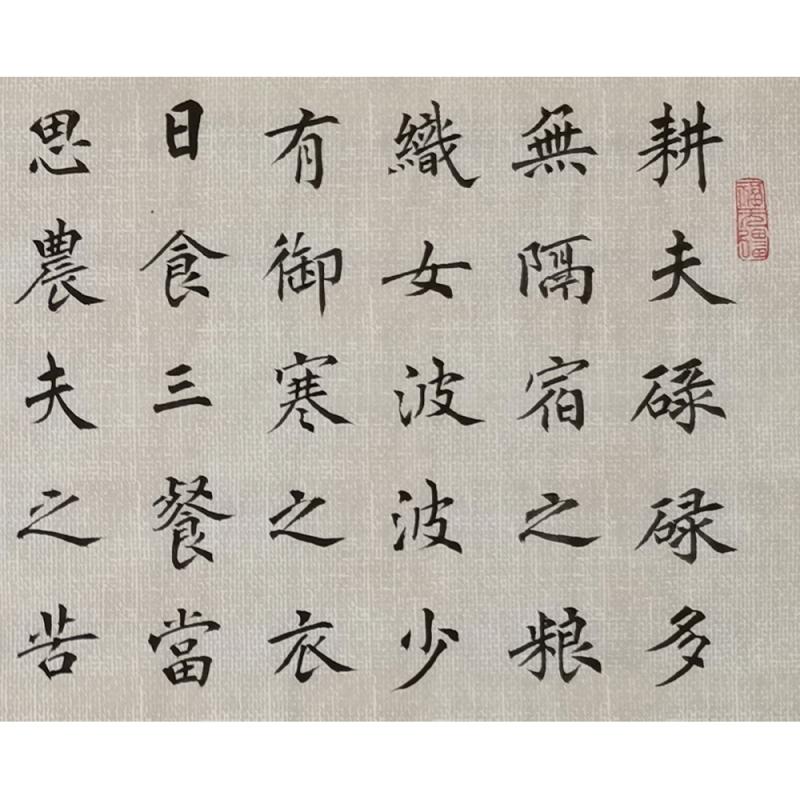 耕夫碌碌多
無隔宿之粮
織女波波少
有御寒之衣
日食三餐當
思農夫之苦